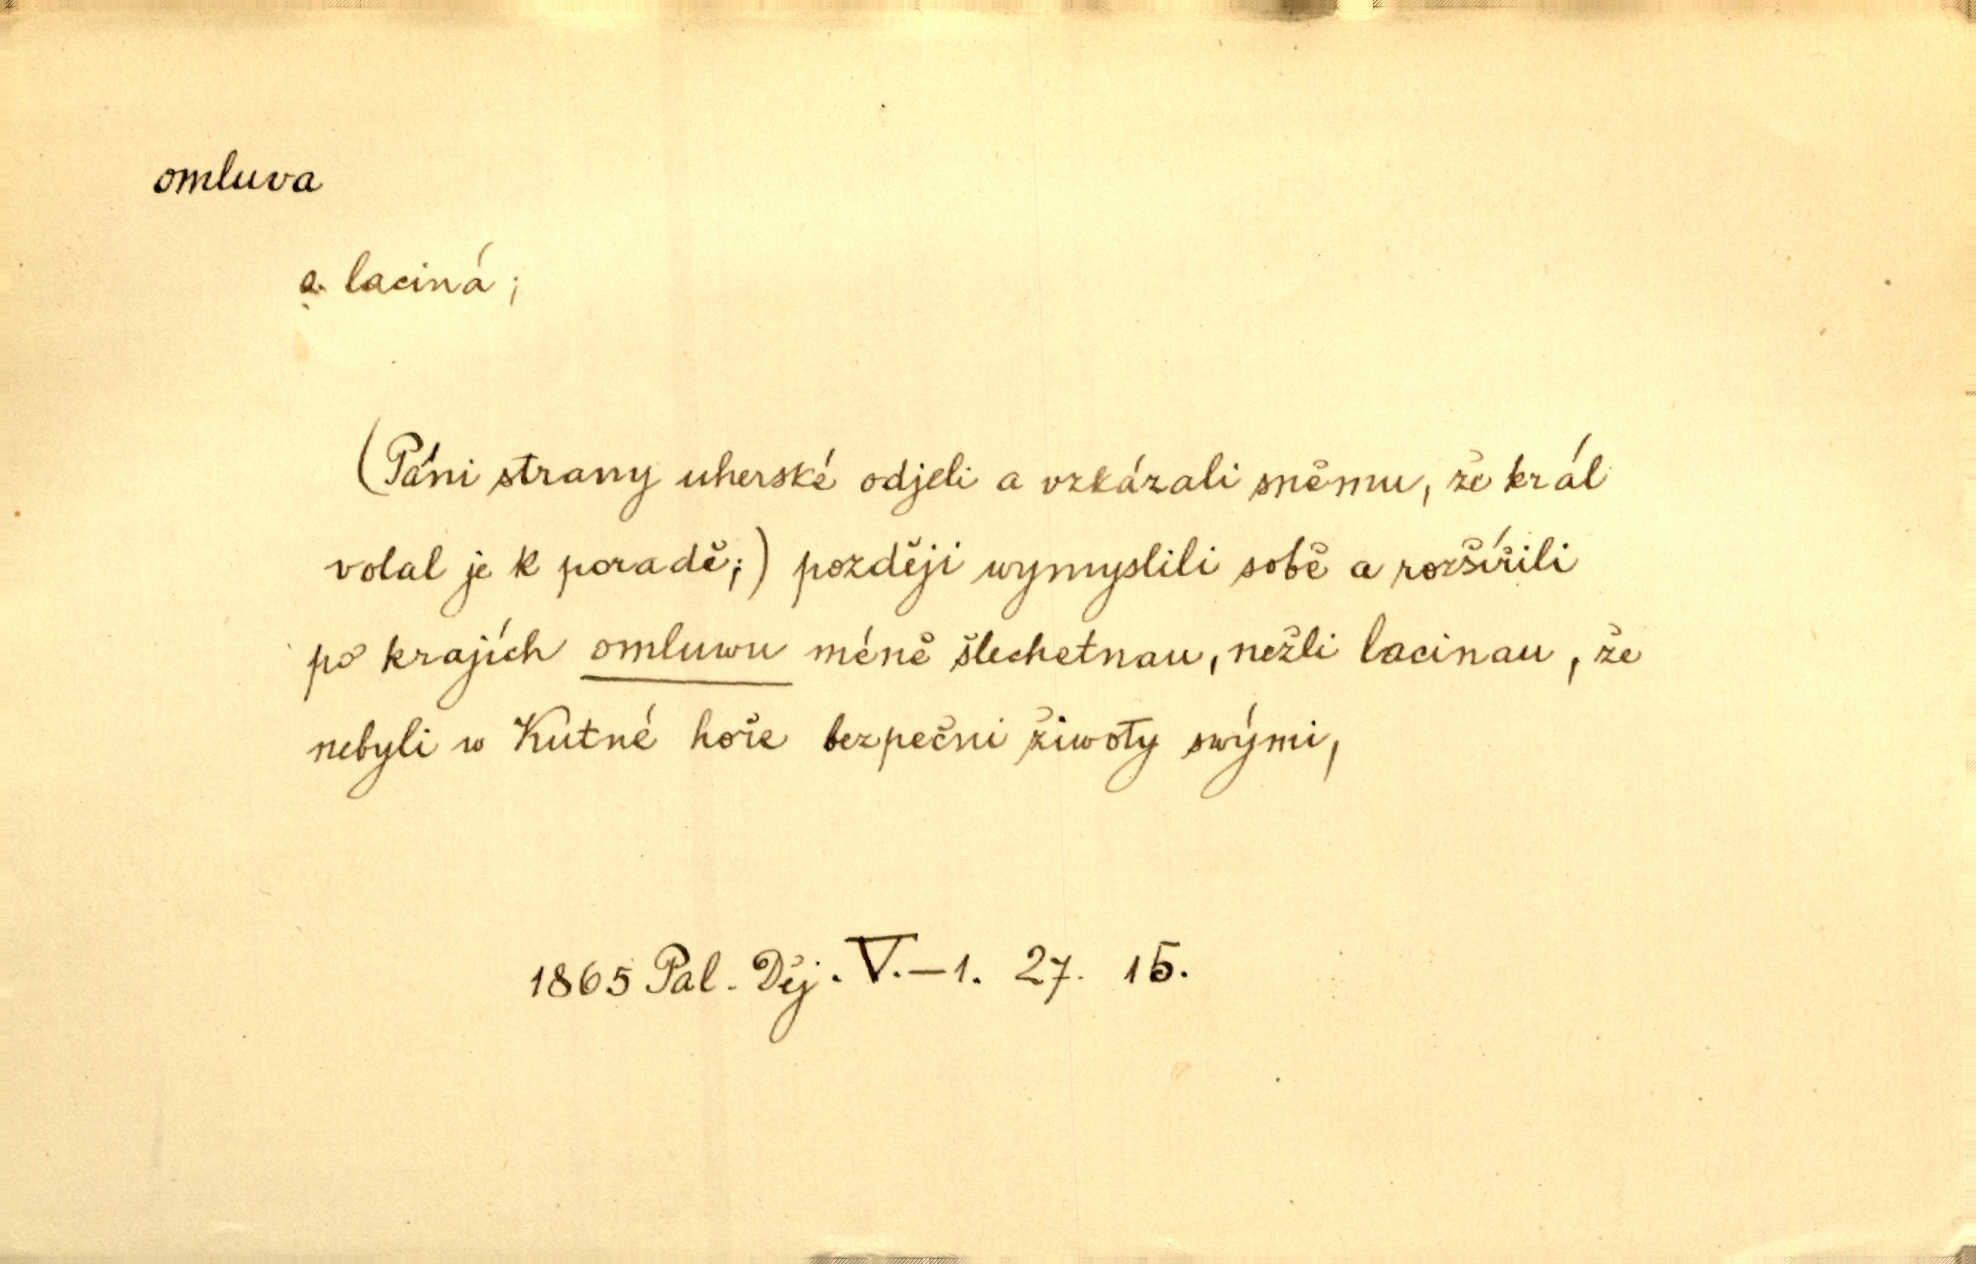 omluva
o. laciná;
(Páni strany uherské odjeli a vzkázali sněmu, že král
volal je k poradě;) později wymyslili sobě a rozšířili
po krajích omluwu méně šlechetnau, nežli lacinau, že
nebyli w Kutné hoře bezpečni žiwoty swými,
1865 Pal. Děj. V.–1. 27. 15.